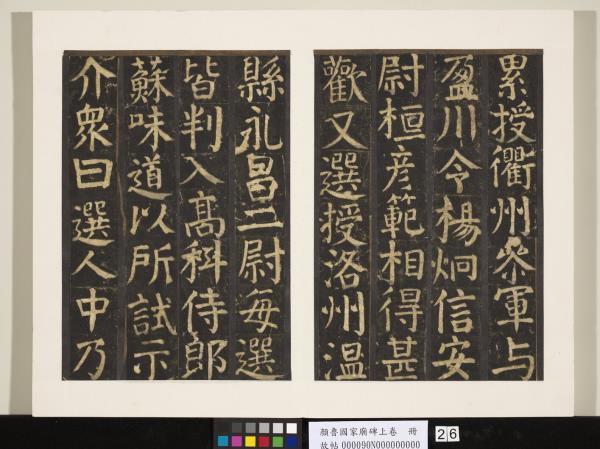 累授衢州參軍与
盈川令楊炯信安
尉桓彦範相得甚
歡又選授洛州溫
縣永昌二尉每選
皆判入高科侍郎
蘇味道以所試示
介衆曰選人中乃
顏魯國家廟碑上卷 冊
故帖 000090N000000000
26